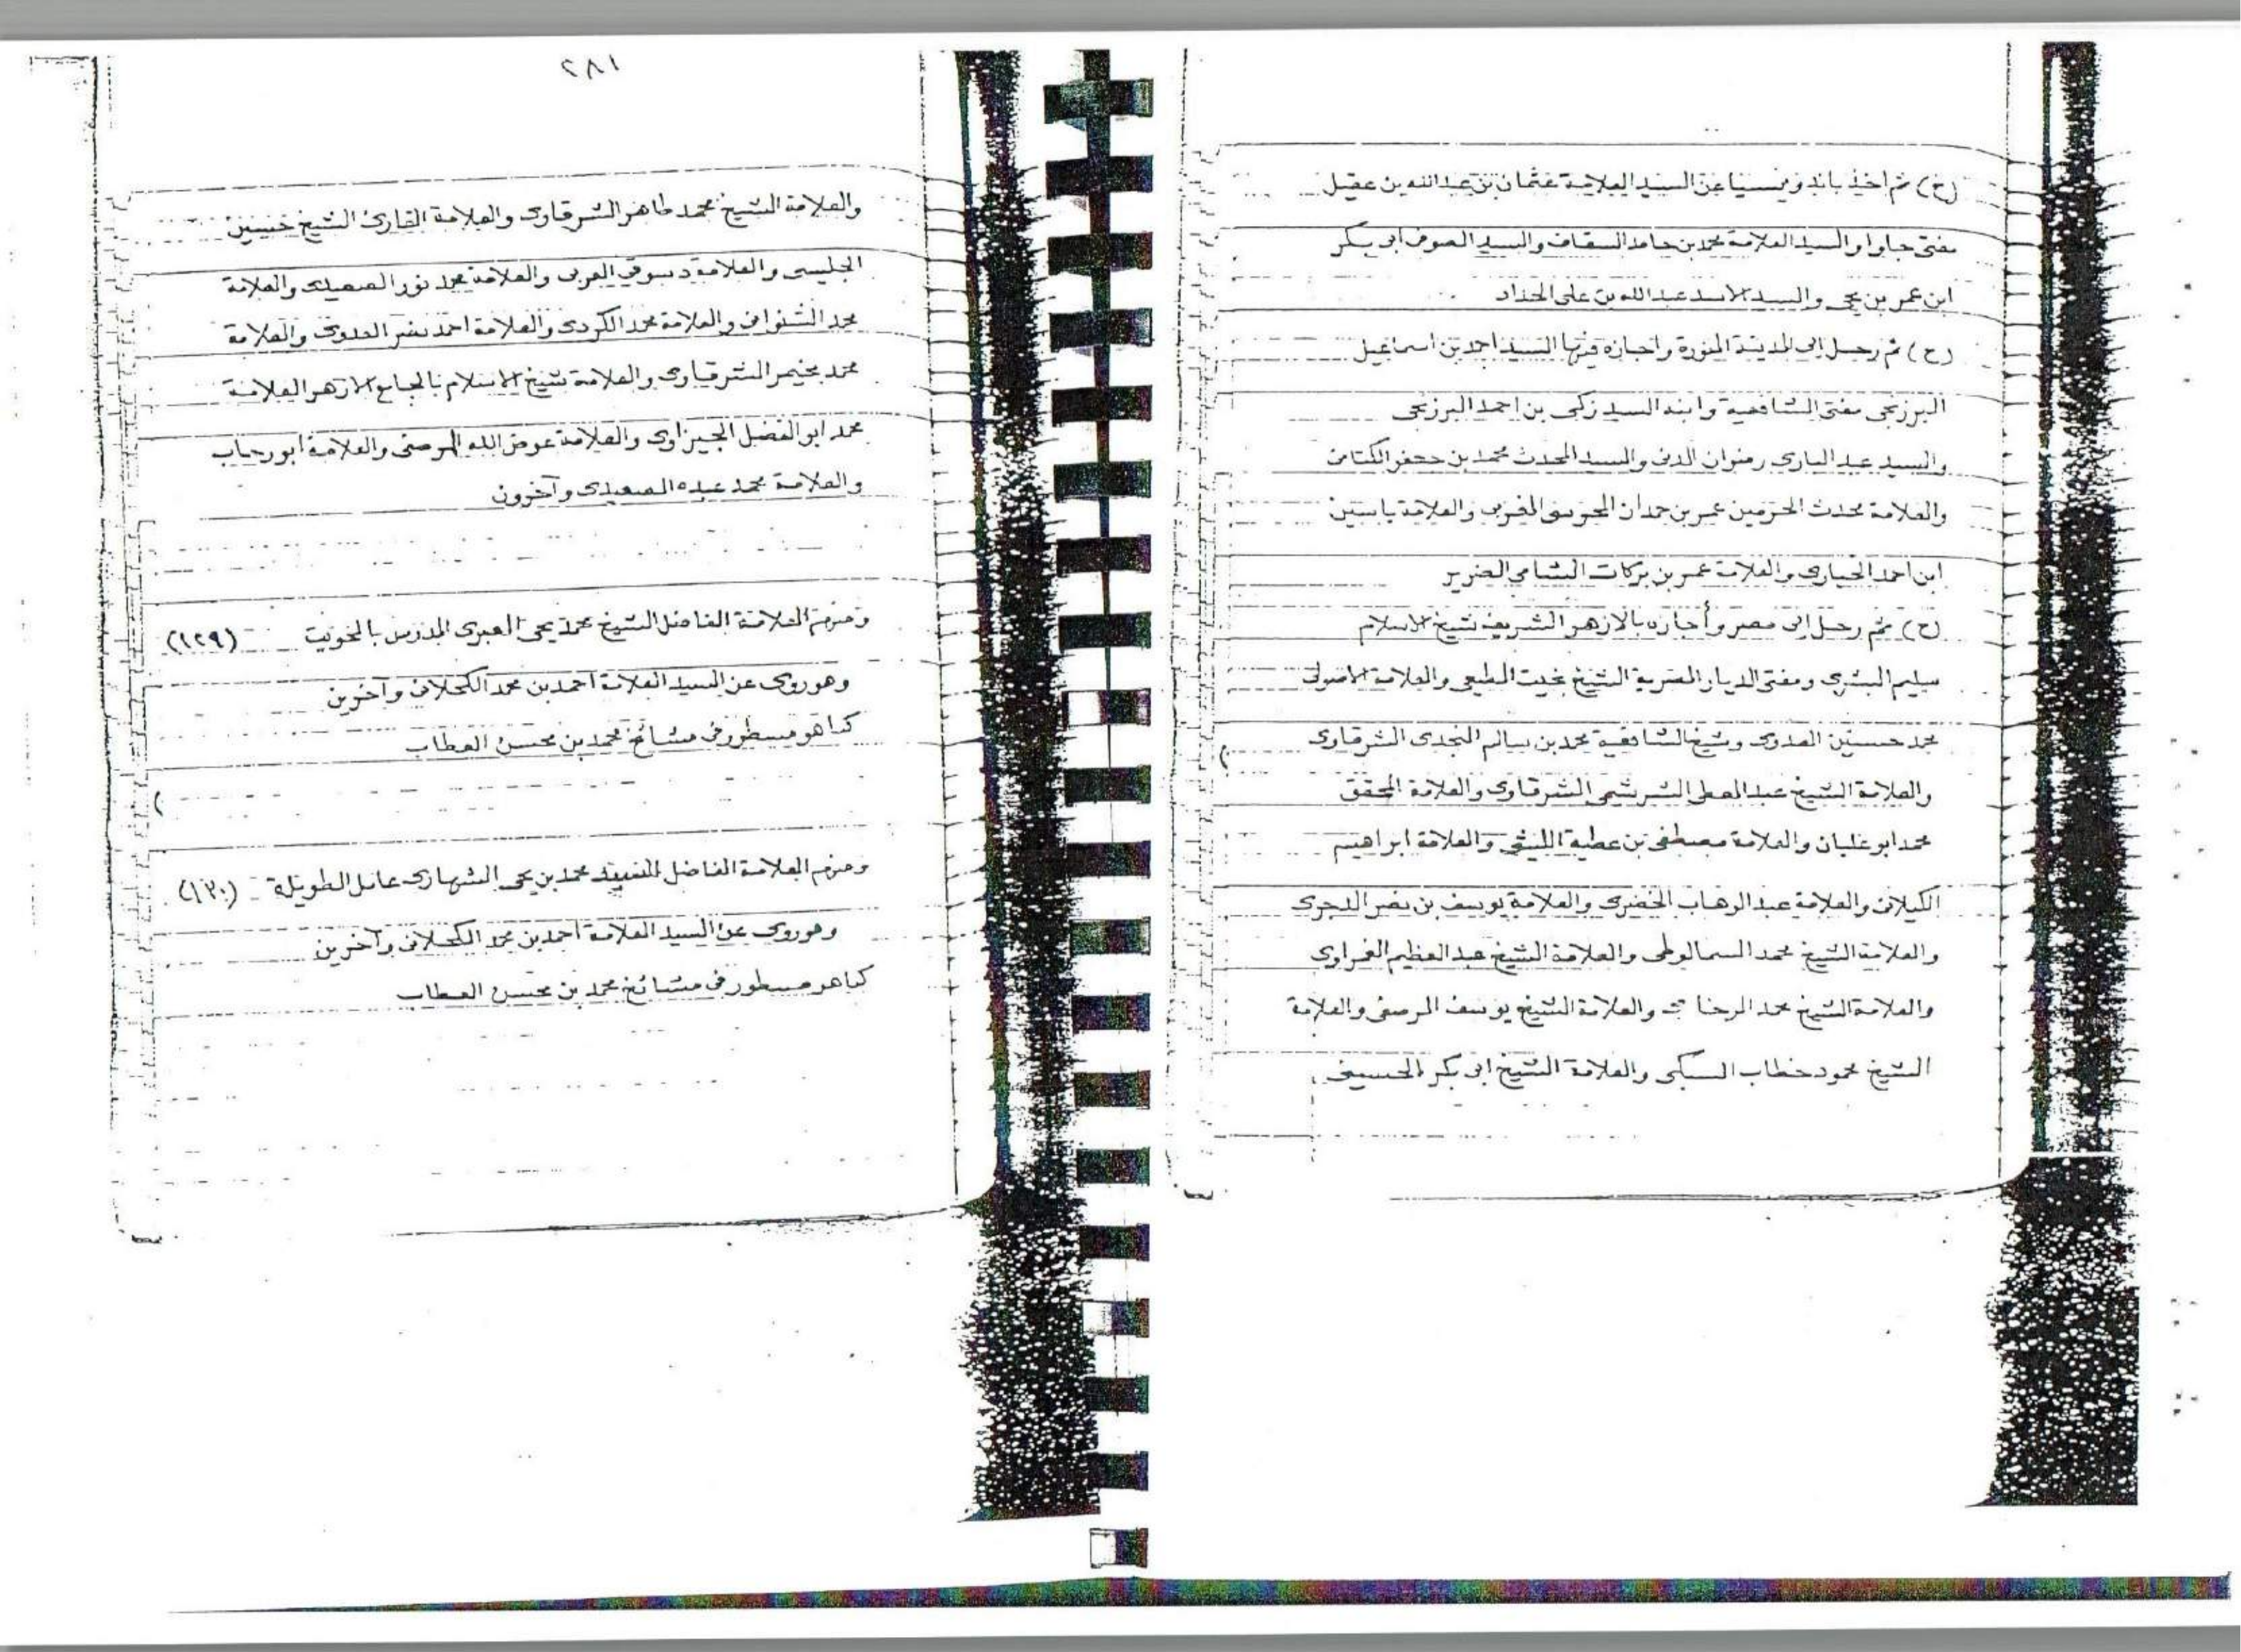 (ح) ثم اخذ باندونيسيا عن السيد العلامة عثمان بن عبدالله بن عقيل
مفتى جاوا والسيد العلامة محمد بن حامد السقاف والسيد الصوفى ابى بكر
ابن عمر بن يحيى والسيد الاسد عبدالله بن على الحداد
(ح) ثم رحل الى المدينة المنورة واجازه فيها السيد احمد بن اسماعيل
البرزنجى مفتى الشافعية وابنه السيد زكى بن احمد البرزنجى
والسيد عبد البارى رضوان المدنى والسيد المحدث محمد بن جعفر الكتانى
والعلامة محدث الحرمين عمر بن حمدان المحرسى المغربى والعلامة ياسين
ابن احمد الخيارى والعلامة عمر بن بركات الشامي الضرير
(ح) ثم رحل الى مصر وأجازه بالازهر الشريف شيخ الاسلام
سليم البشرى ومفتى الديار المصرية الشيخ بخيت المطيعى والعلامة الاصولى
محمد حسنين العدوى وشيخ الشافعية محمد بن سالم النجدى الشرقاوى
والعلامة الشيخ عبد المعطى الشرشيمى الشرقاوى والعلامة المحقق
محمد ابو عليان والعلامة مصطفى بن عطية الليثى والعلامة ابراهيم
الكيلانى والعلامة عبد الوهاب الخضرى والعلامة يوسف بن نصر الدجوى
والعلامة الشيخ محمد السمالوطى والعلامة الشيخ عبد العظيم الغمراوى
والعلامة الشيخ محمد والعلامة الشيخ يوسف المرصفى والعلامة
الشيخ محمود خطاب السبكى والعلامة الشيخ ابى بكر الحسينى
٢٨١
والعلامة الشيخ محمد طاهر الشرقاوى والعلامة القارئ الشيخ حسين
والعلامة دسوقى العربى والعلامة محمد نور الصعيدى والعلامة
محمد الشنوانى والعلامة محمد الكردى والعلامة احمد نصر العدوى والعلامة
محمد الشرقاوى والعلامة شيخ الاسلام بالجامع الازهر العلامة
محمد ابو الفضل الجيزاوى والعلامة عوض الله المرصفى والعلامة ابو رحاب
والعلامة محمد عبده الصعيدى وآخرون
ومنهم العلامة الفاضل الشيخ محمد يحيى العبرى المدرس بالخويت (١٢٩)
وهو روى عن السيد العلامة احمد بن محمد الكحلانى وآخرين
كما هو مسطور فى مشائخ محمد بن محسن العطاب
ومنهم العلامة الفاضل محمد بن يحيى الشهارى عامل الطويلة (١٣٠)
وهو روى عن السيد العلامة احمد بن محمد الكحلانى وآخرين
كما هو مسطور فى مشائخ محمد بن محسن العطاب